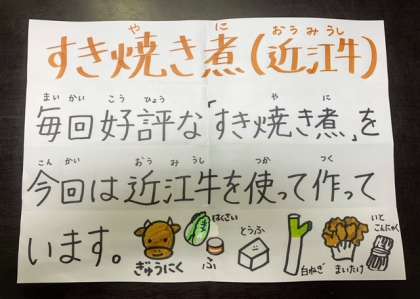 やに
すき焼き煮(近江牛)
おうみうし
まいかい こうひょう やに
毎回好評な「すき焼き煮」を
こんかい おうみうし つか つく
今回は近江牛を使って作って
います。
ぎゅうにく
はくさい
ふ
とうふ
白ねぎ
まいたけ
いと
こんにゃく